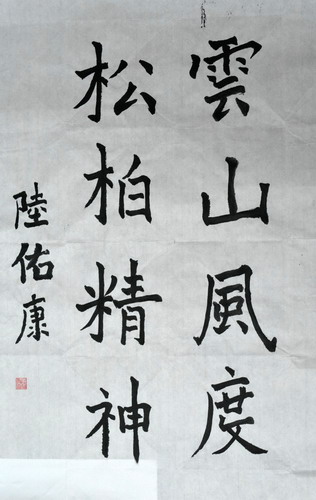 雲山風度
松柏精神
陸佑康